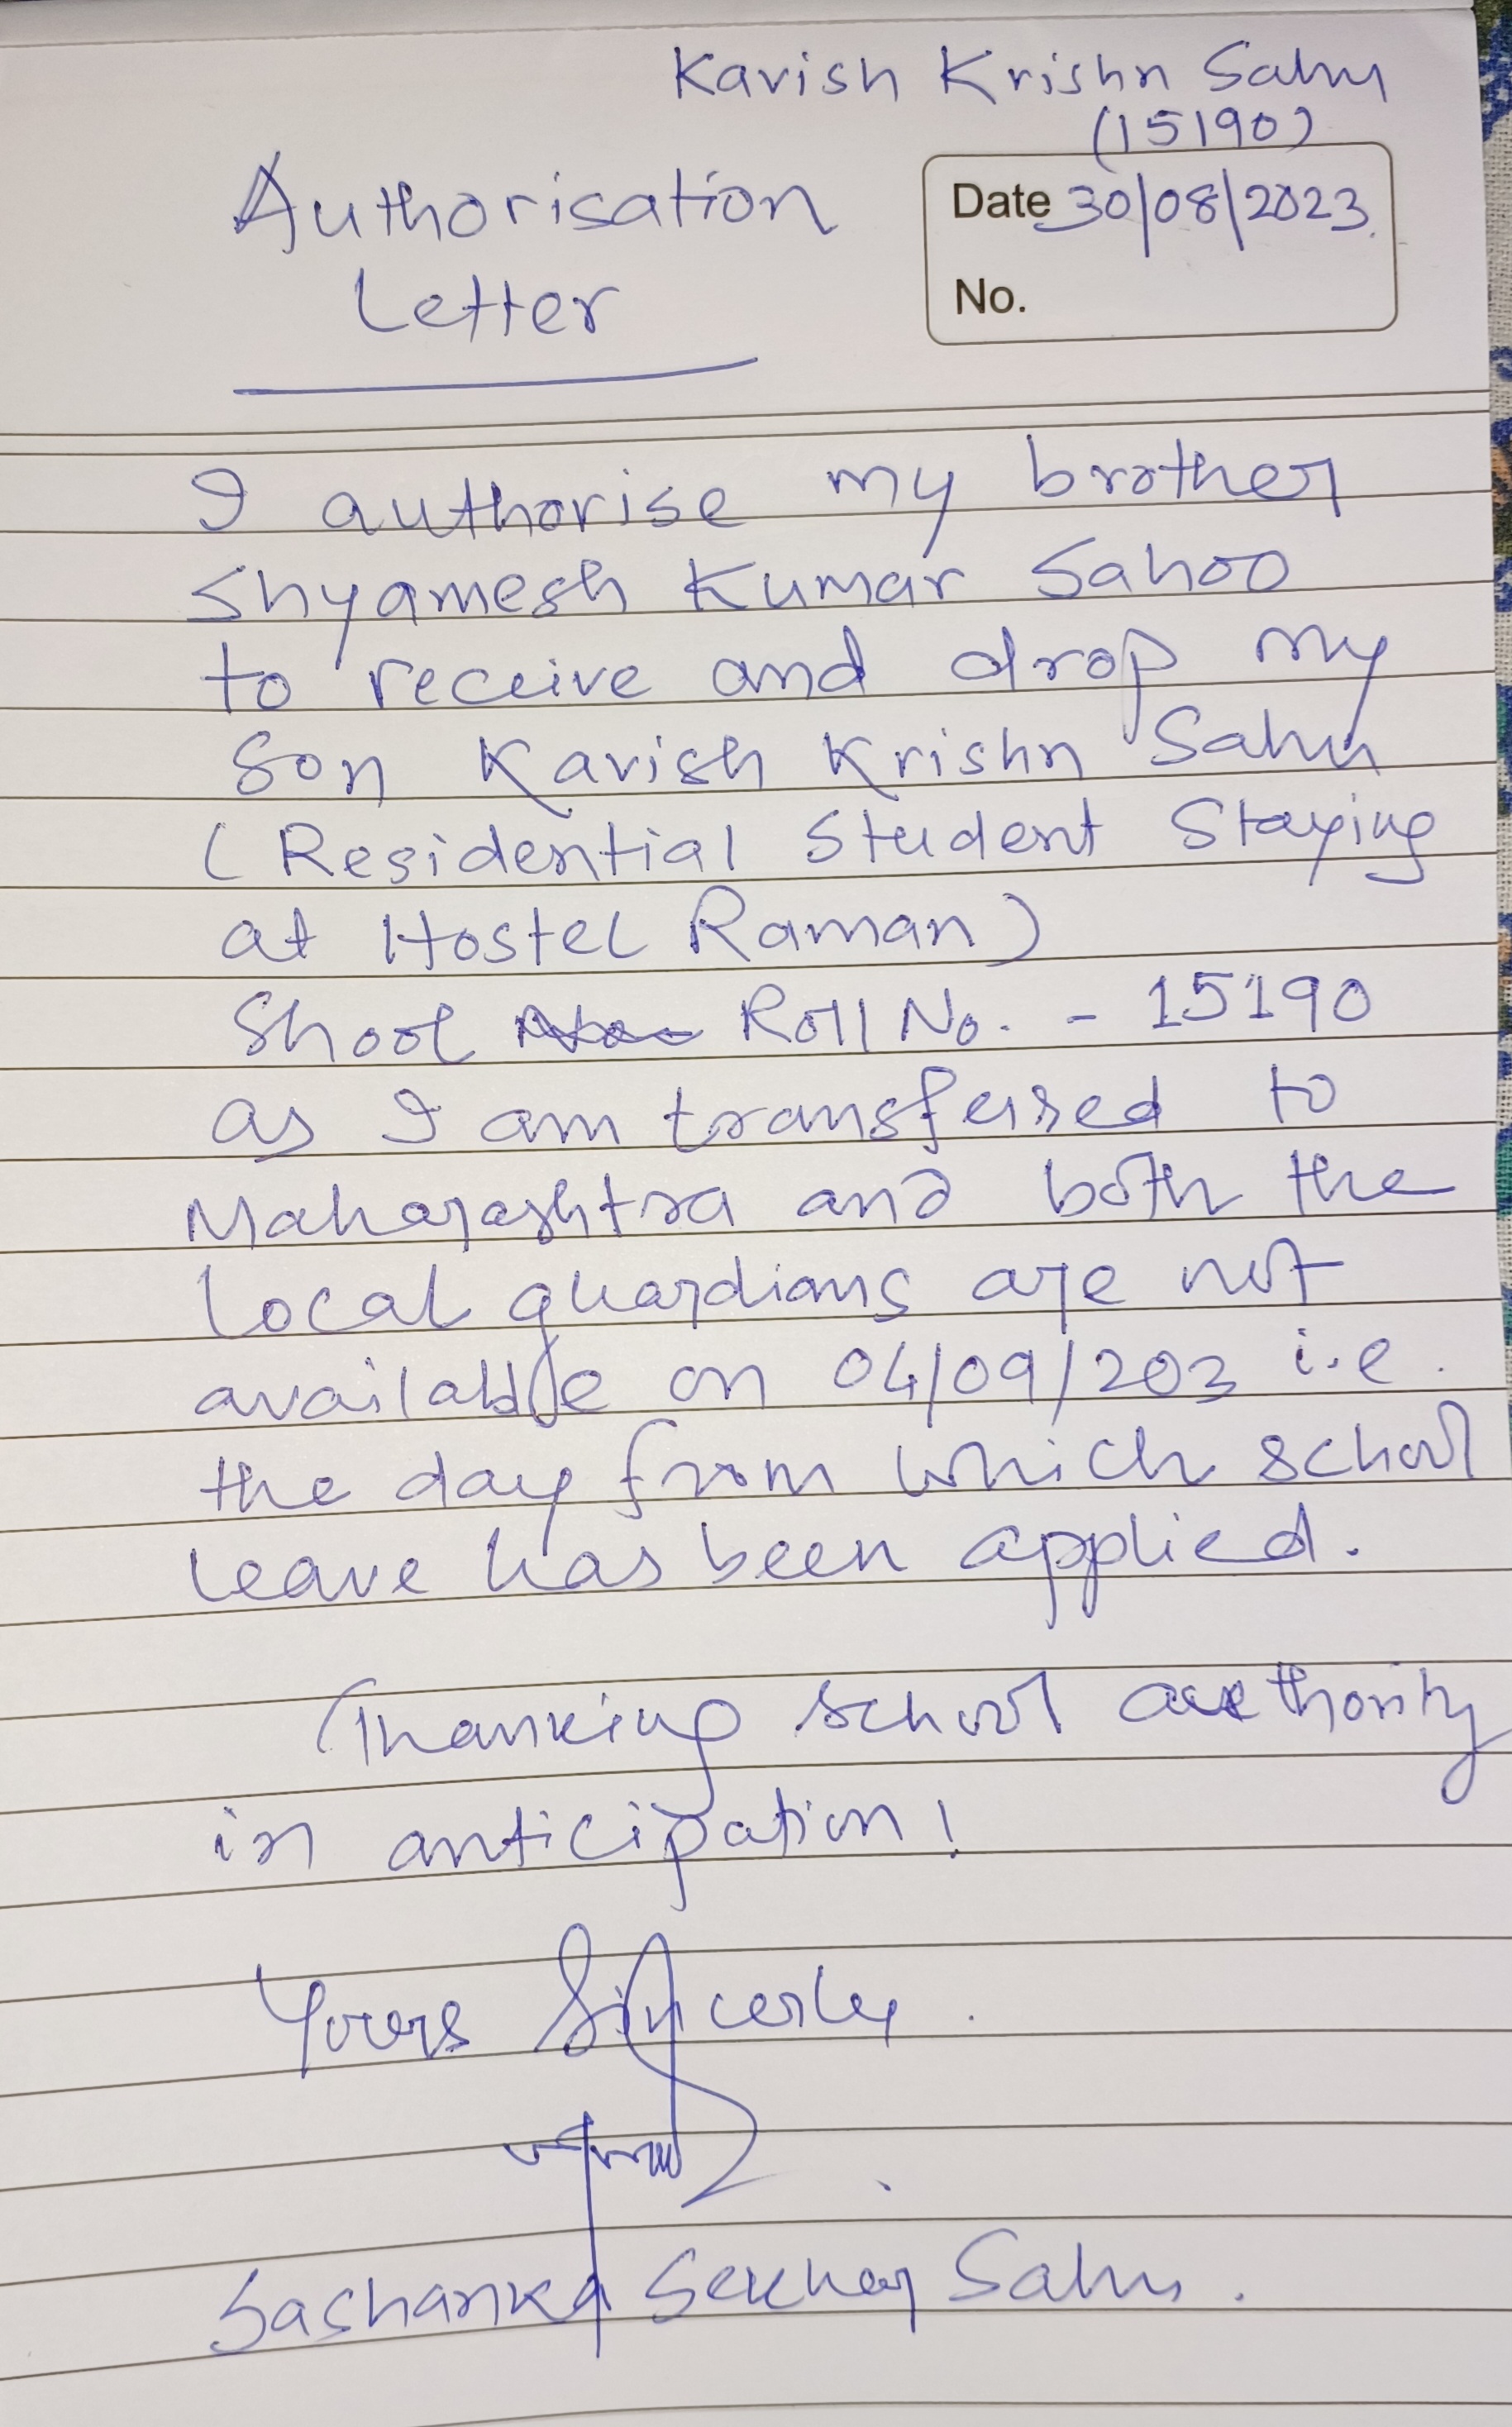 Kavish Krishn Sahu
(15190)
Authorisation
Letter
Date 30/08/2023.
No.
I authorise my brother
Shyamesh Kumar Sahoo
to receive and drop my
son Kavish Krishn Sahu
(Residential Student Staying
at Hostel Raman)
Shool Roll No. - 15190
as I am transferred to
Maharashtra and both the
local guardians are not
available on 04/09/203 i.e.
the day from which school
leave has been applied.
Thanking school authority
in anticipation!
Yours Sincerly.
Sashanka Sekhar Sahu.